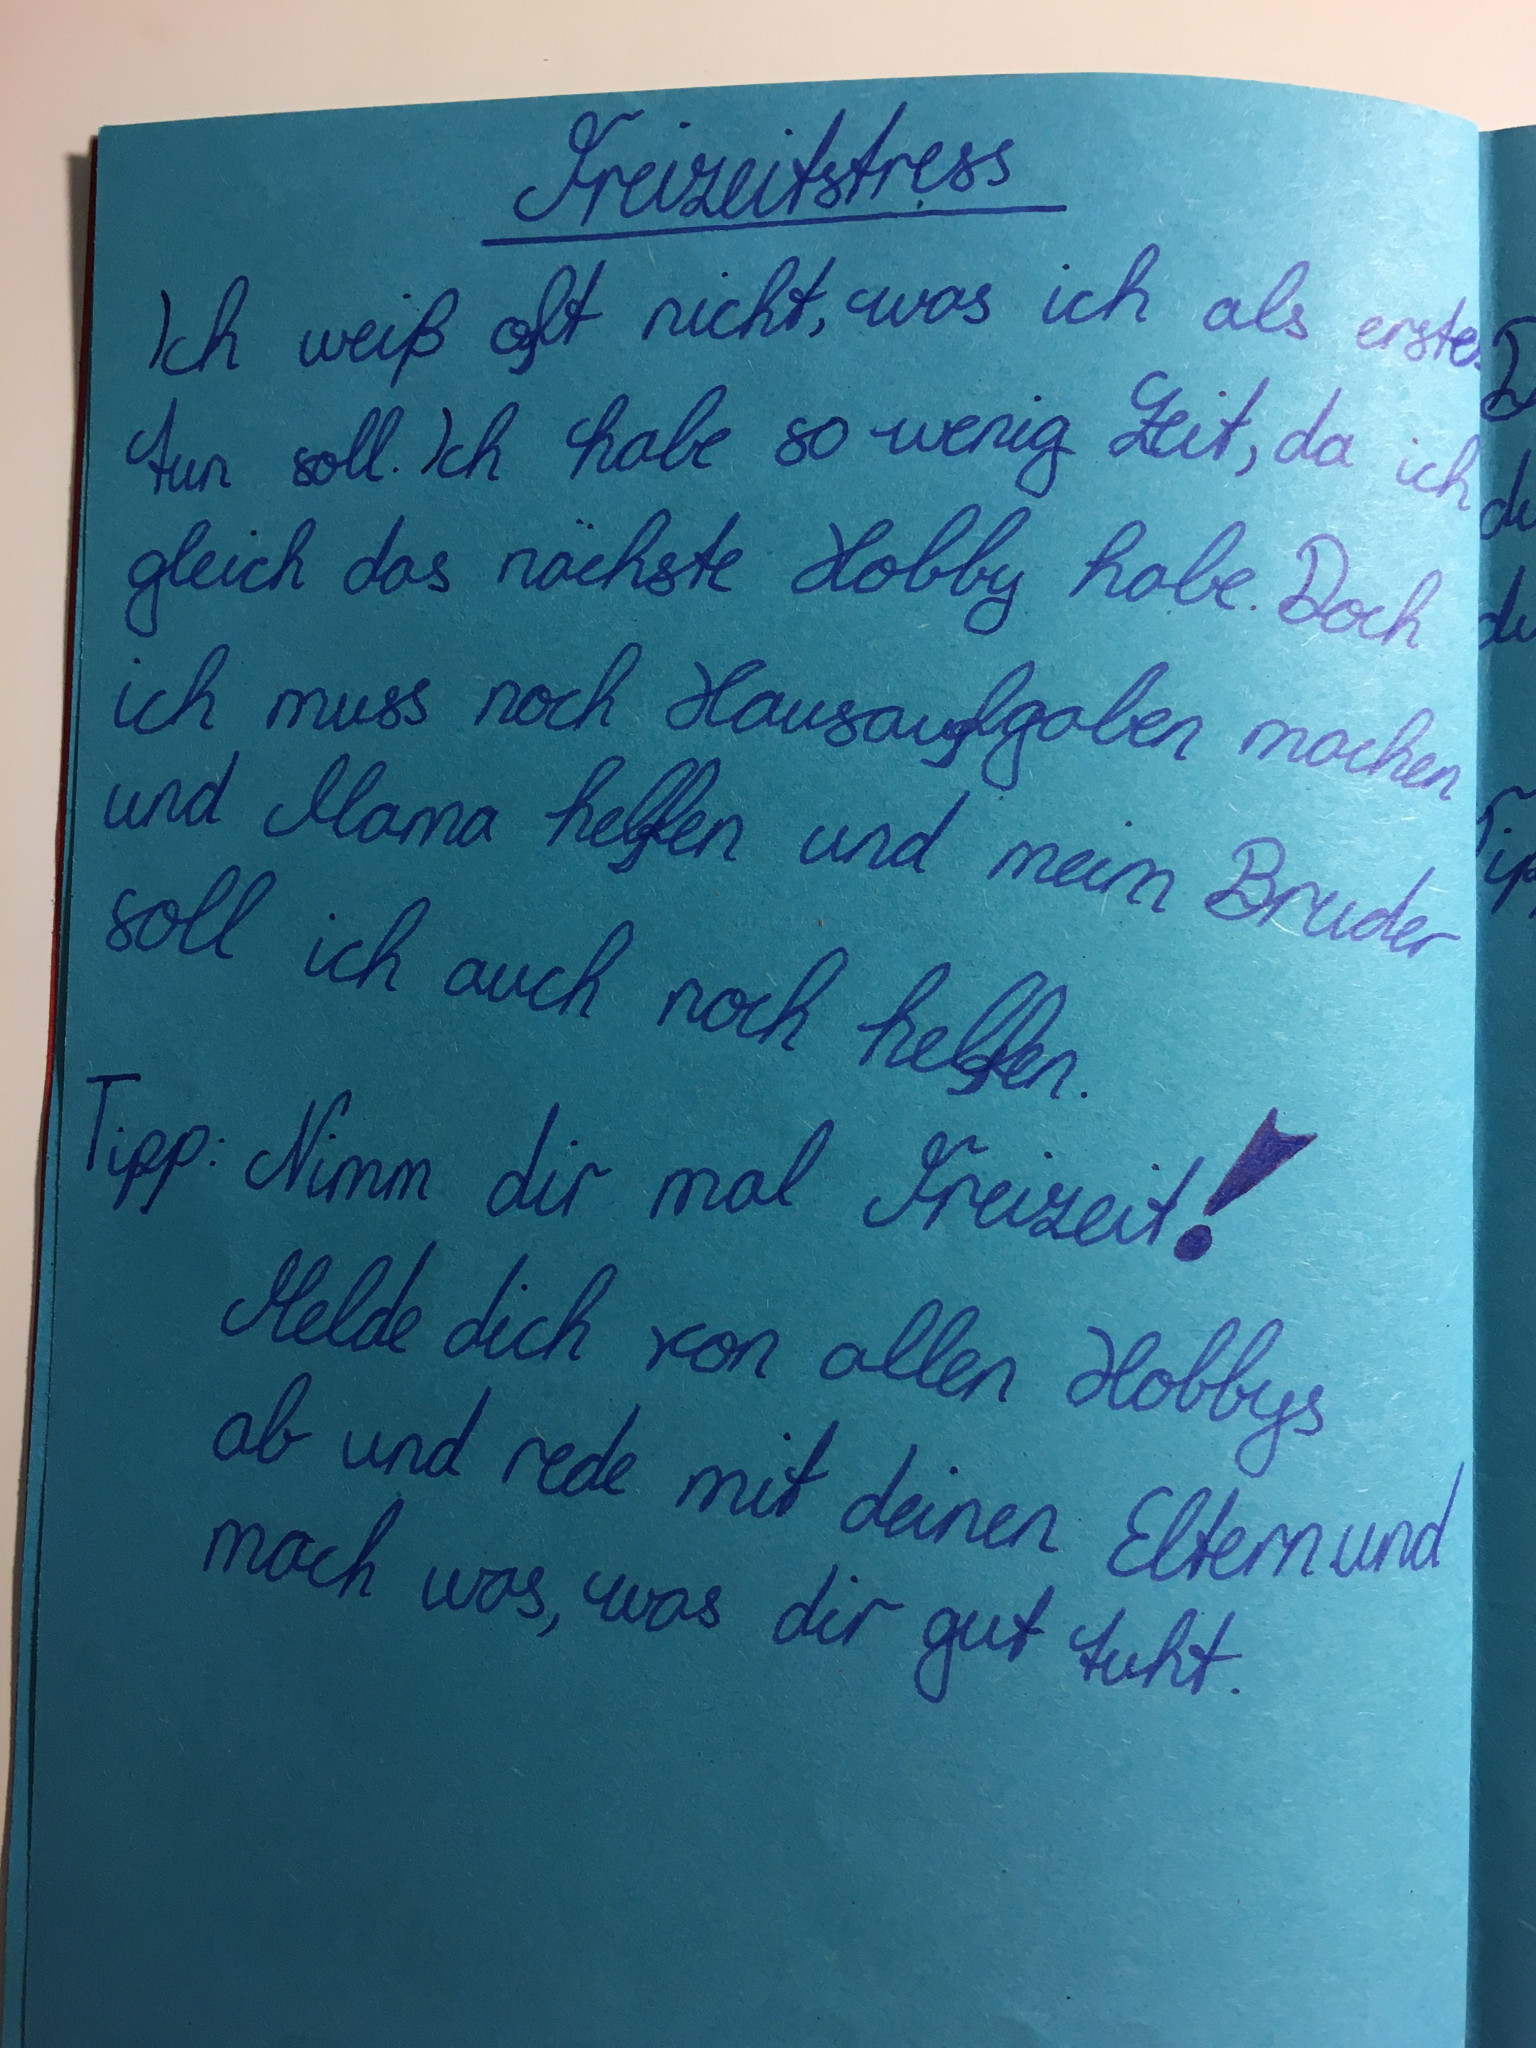 Freizeitstress
Ich weiß oft nicht, was ich als erstes
tun soll. Ich habe so wenig Zeit, da ich
gleich das nächste Hobby habe. Doch
ich muss noch Hausaufgaben machen
und Mama helfen und meim Bruder
soll ich auch noch helfen.
Tipp: Nimm dir mal Freizeit!
Melde dich von allen Hobbys
ab und rede mit deinen Eltern und
mach was, was dir gut tuht.